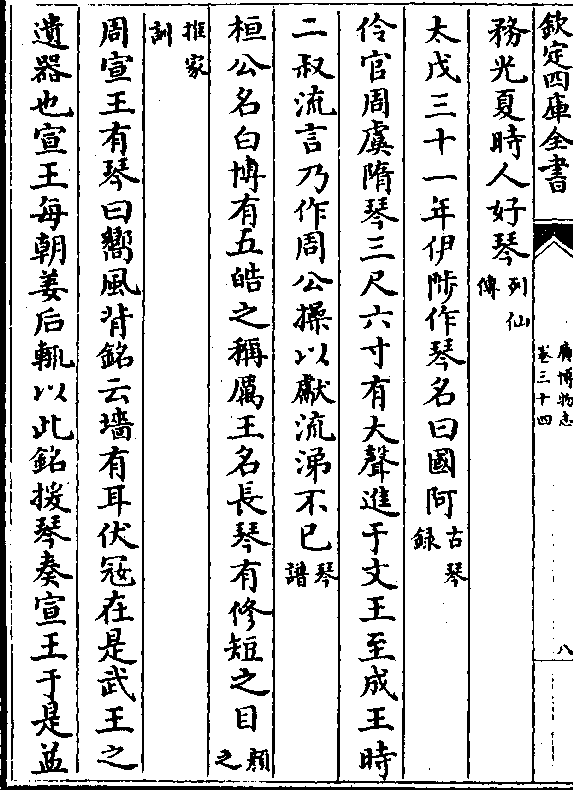 欽定四庫全書
廣博物志
卷三十四
八
務光夏時人好琴列仙傳
太戊三十一年伊陟作琴名曰國阿古琴録
伶官周虞隋琴三尺六寸有大聲進于文王至成王時
二叔流言乃作周公操以獻流涕不已琴譜
桓公名白博有五皓之稱厲王名長琴有修短之目顏之
推家訓
周宣王有琴曰嚮風背銘云墻有耳伏冦在是武王之
遺器也宣王每朝姜后輒以此銘援琴奏宣王于是益